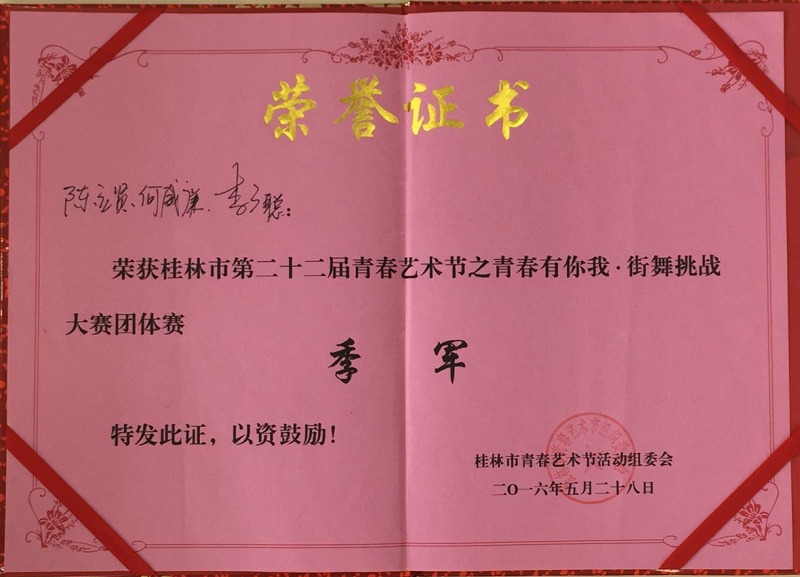 荣誉证书
陈立贤、何威廉、李子聪：
荣获桂林市第二十二届青春艺术节之青春有你我·街舞挑战
大赛团体赛
季 军
特发此证，以资鼓励！
桂林市青春艺术节活动组委会
二〇一六年五月二十八日